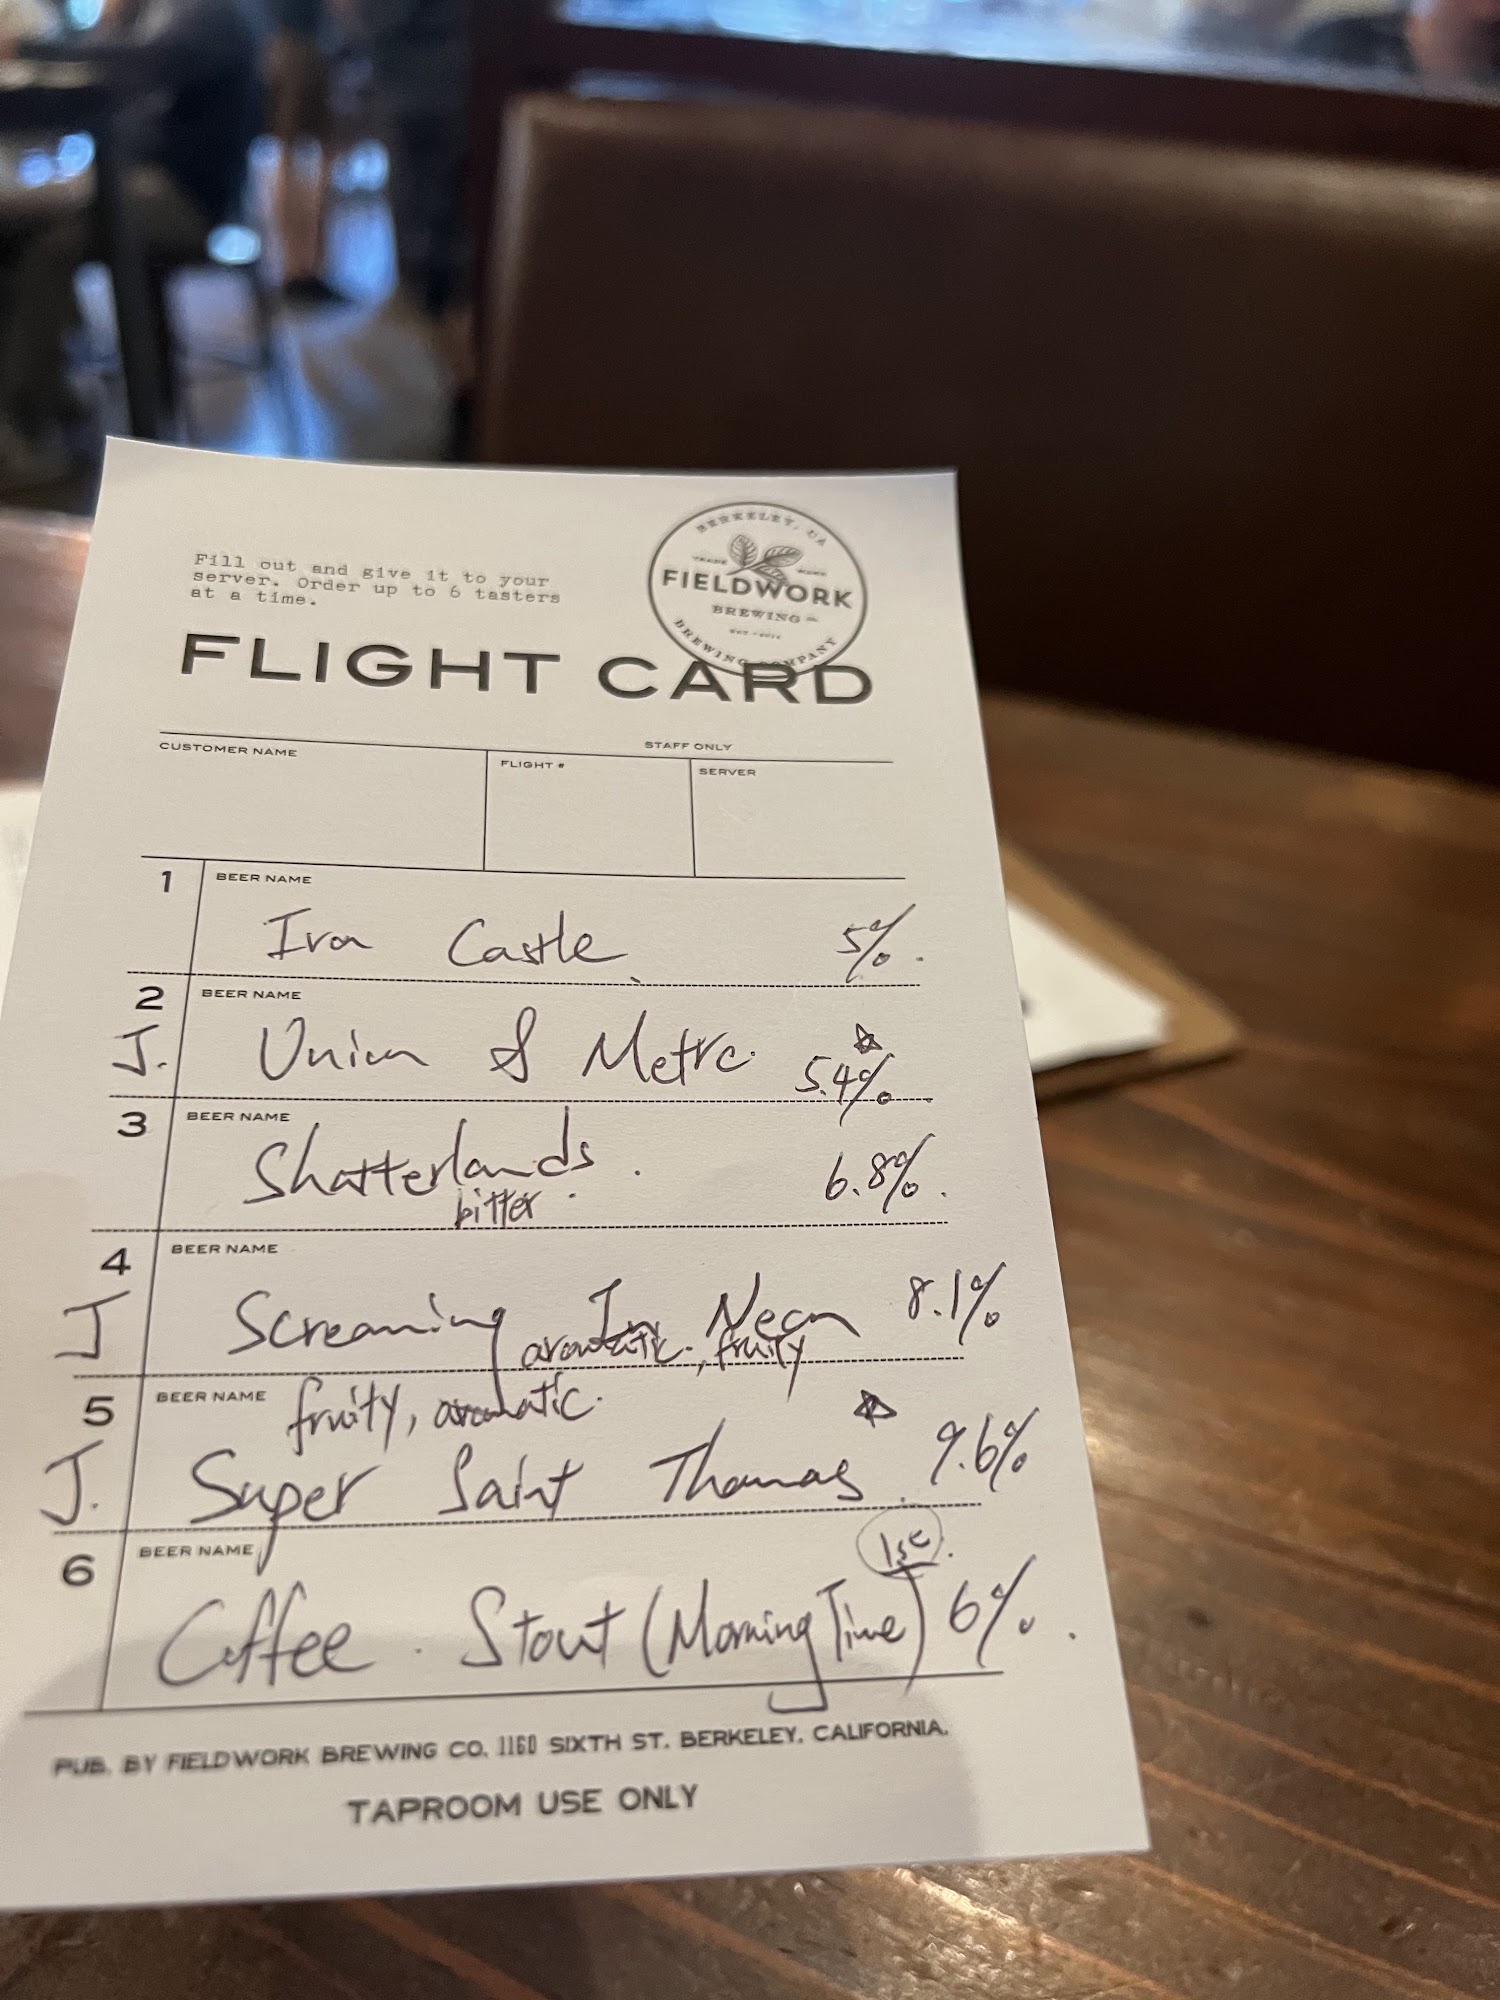 Fill out and give it to your
server. Order up to 6 tasters
at a time.
BERKELEY, CA
TRADE MARK
FIELDWORK
BREWING CO.
BREWING COMPANY
FLIGHT CARD
CUSTOMER NAME
STAFF ONLY
FLIGHT #
SERVER
1 BEER NAME
Iron Castle 5%.
2 BEER NAME
J. Union & Metric 5.4%.
3 BEER NAME
Shatterlands. 6.8%.
bitter.
4 BEER NAME
J Screaming In Neon 8.1%
aromatic, fruity
5 BEER NAME
fruity, aromatic.
J. Super Saint Thomas. 9.6%
6 BEER NAME
1st.
Coffee. Stout (Morning Time) 6%.
PUB. BY FIELDWORK BREWING CO. 1160 SIXTH ST. BERKELEY, CALIFORNIA.
TAPROOM USE ONLY